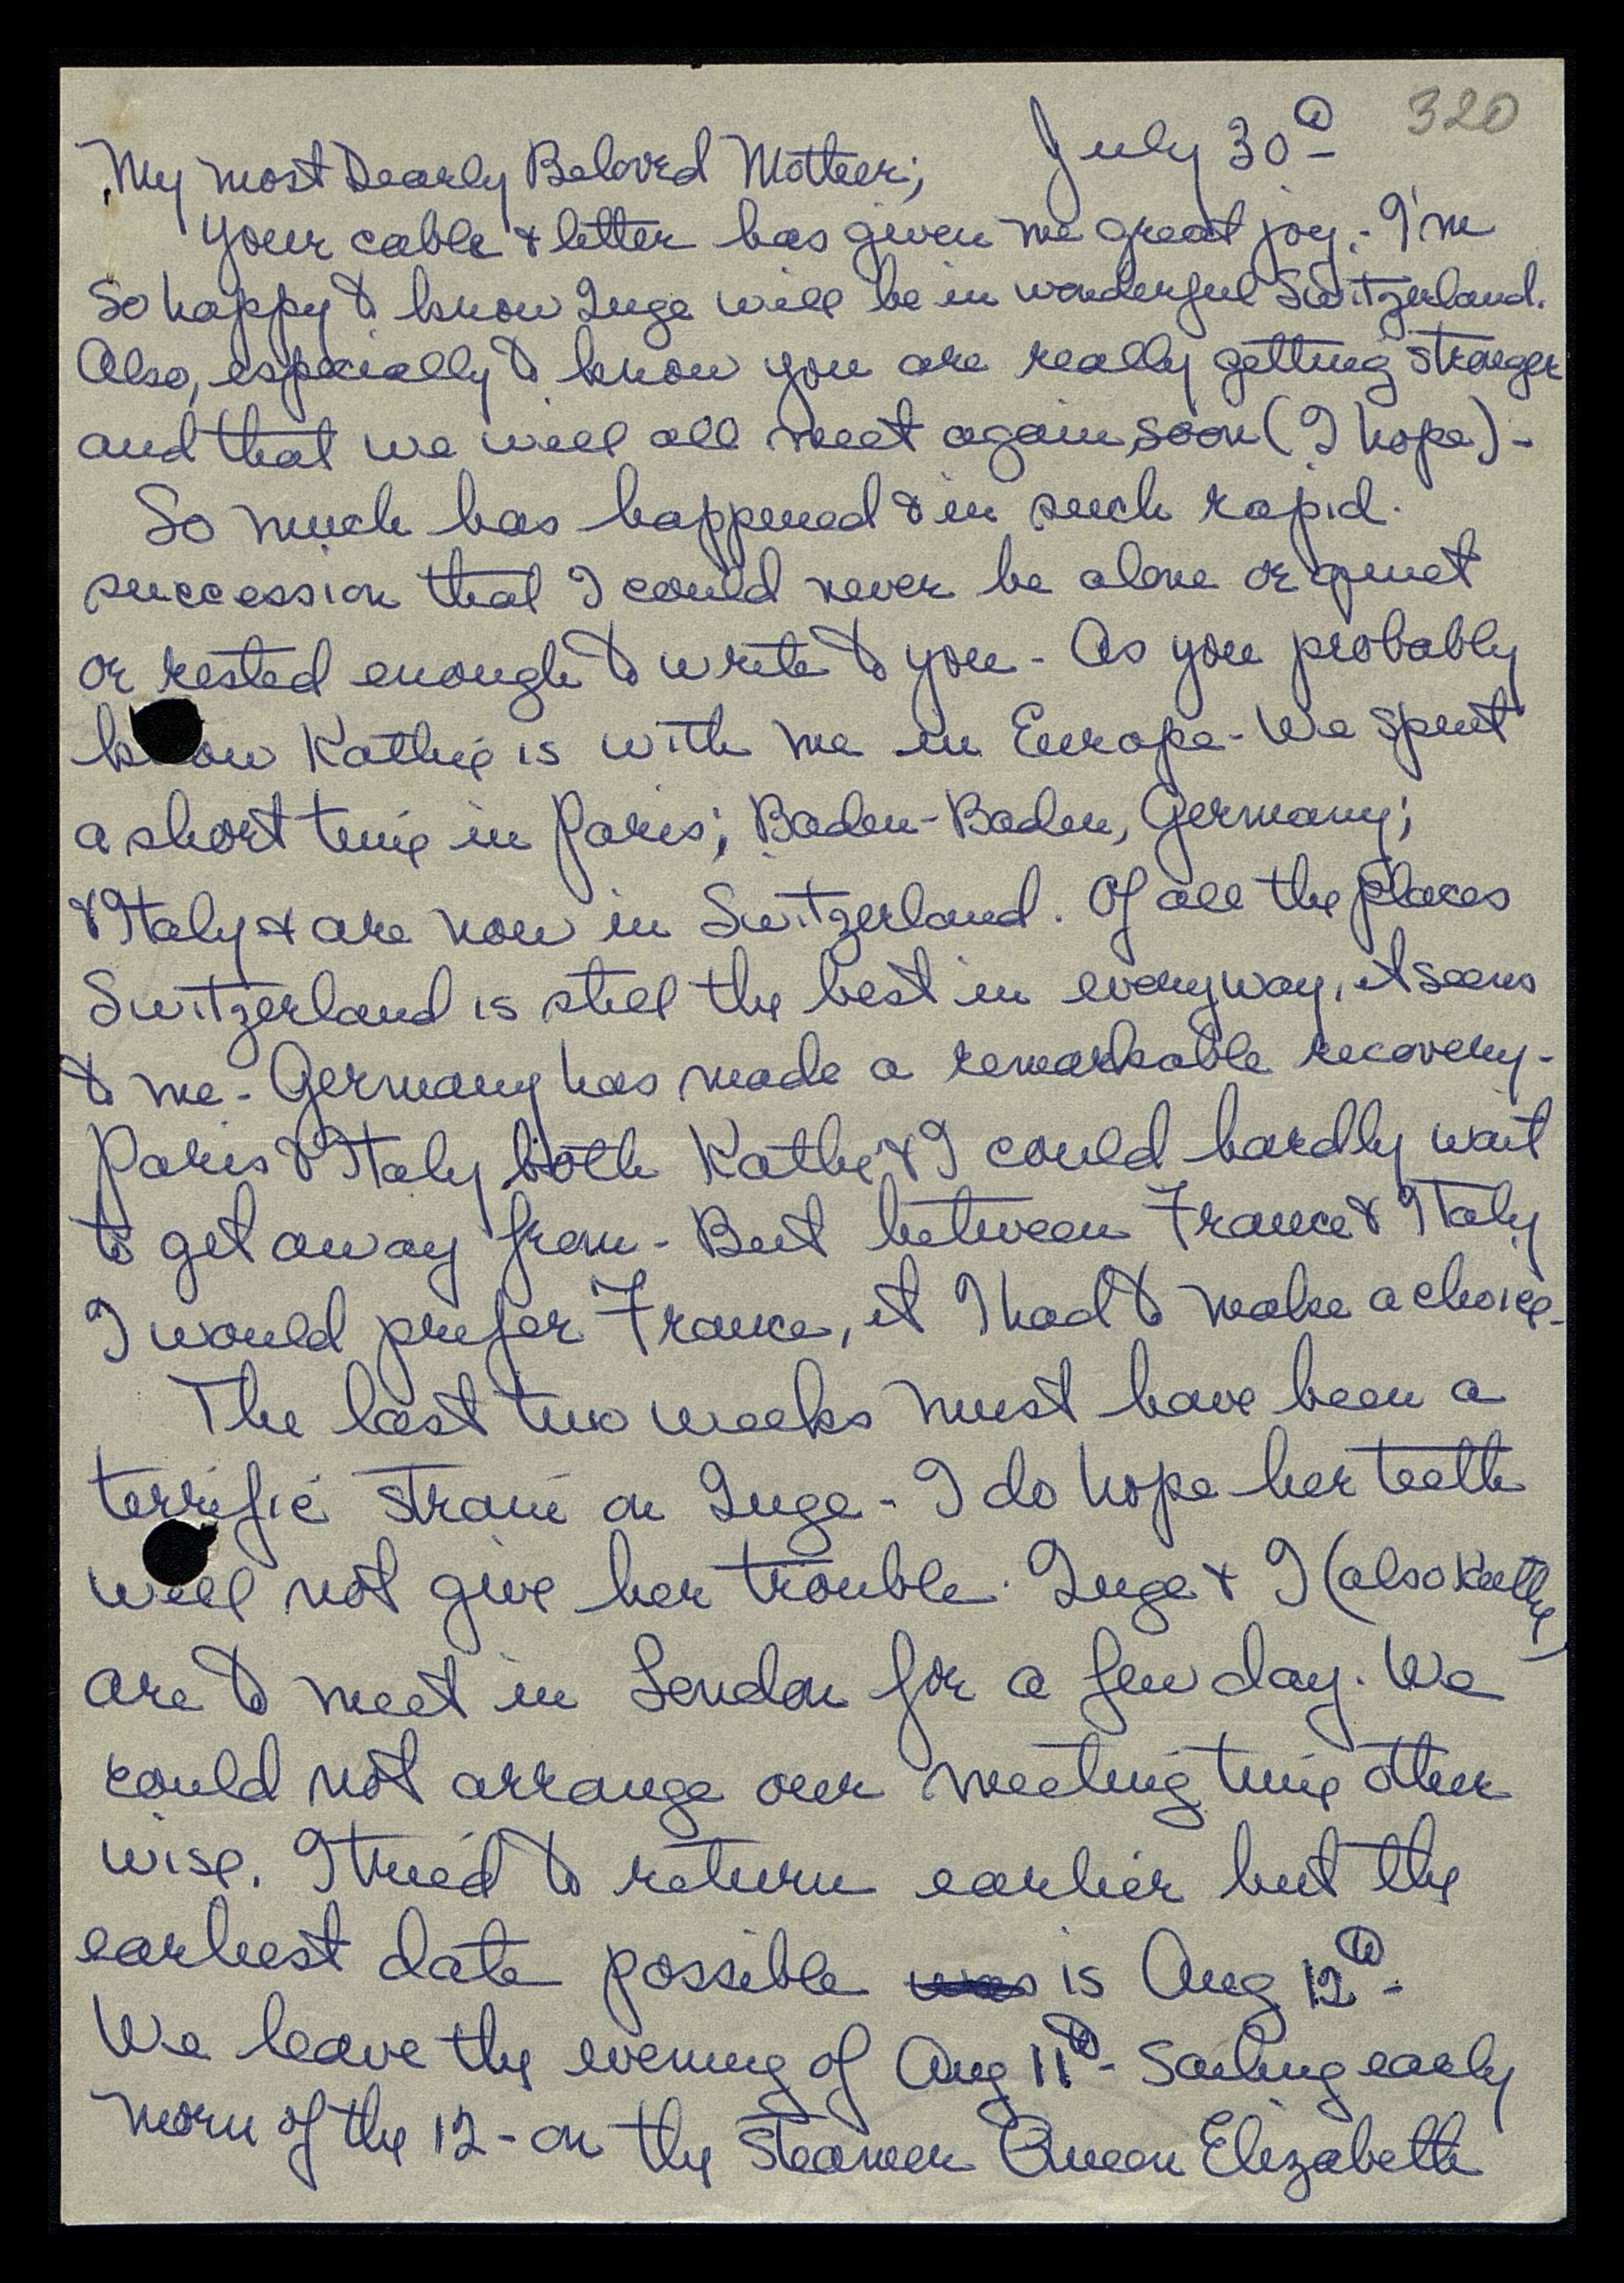 320
July 30th
My most Dearly Beloved Mother;
Your cable & letter has given me great joy.- I'm
so happy to know Inge will be in wonderful Switzerland.
Also, especially to know you are really getting stronger
and that we will all meet again soon (I hope) -
So much has happened & in such rapid
succession that I could never be alone or quiet
or rested enough to write to you - As you probably
know Kathie is with me in Europe - We spent
a short time in Paris; Baden-Baden, Germany;
& Italy & are now in Switzerland. Of all the places
Switzerland is still the best in every way, it seems
to me - Germany has made a remarkable recovery -
Paris & Italy both Kathie & I could hardly wait
to get away from - But between France & Italy
I would prefer France, if I had to make a choice -
The last two weeks must have been a
terrific strain on Inge - I do hope her teeth
will not give her trouble. Inge & I (also Kathie)
are to meet in London for a few day. We
could not arrange our meeting time other
wise. I tried to return earlier but the
earliest date possible was is Aug 12th -
We leave the evening of Aug 11th - Sailing early
morn of the 12 - on the Steamer Queen Elizabeth